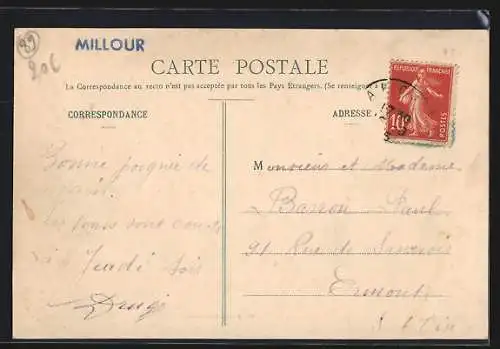 89
20€
MILLOUR
CARTE POSTALE
La Correspondance au recto n'est pas acceptée par tous les Pays Etrangers. (Se renseigner à
CORRESPONDANCE
ADRESSE
REPUBLIQUE FRANÇAISE
10
POSTES
Bonne poignée de
Jeudi soir
Monsieur et Madame
Baron Paul
91 Rue de
Ermont
S et Oise